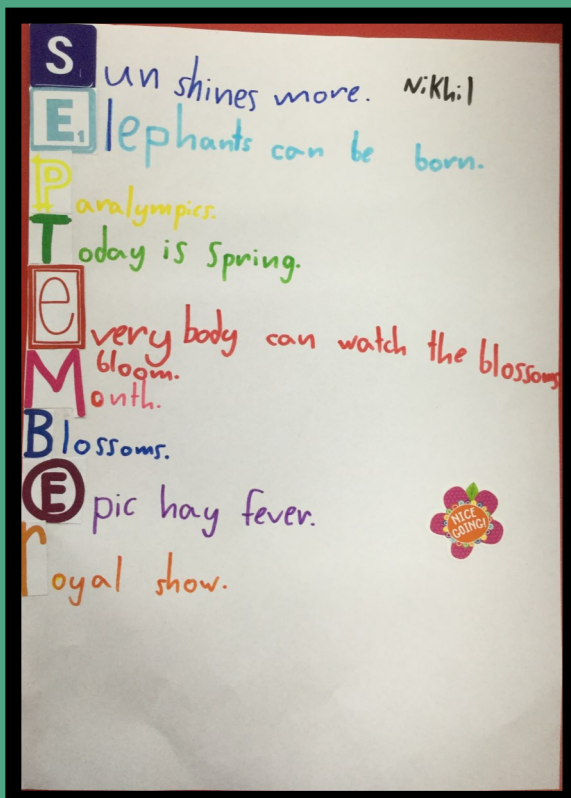 Sun shines more. Nikhil
E1lephants can be born.
Paralympics.
Today is Spring.
everybody can watch the blossoms
bloom.
Month.
Blossoms.
Epic hay fever.
NICE
GOING!
royal show.